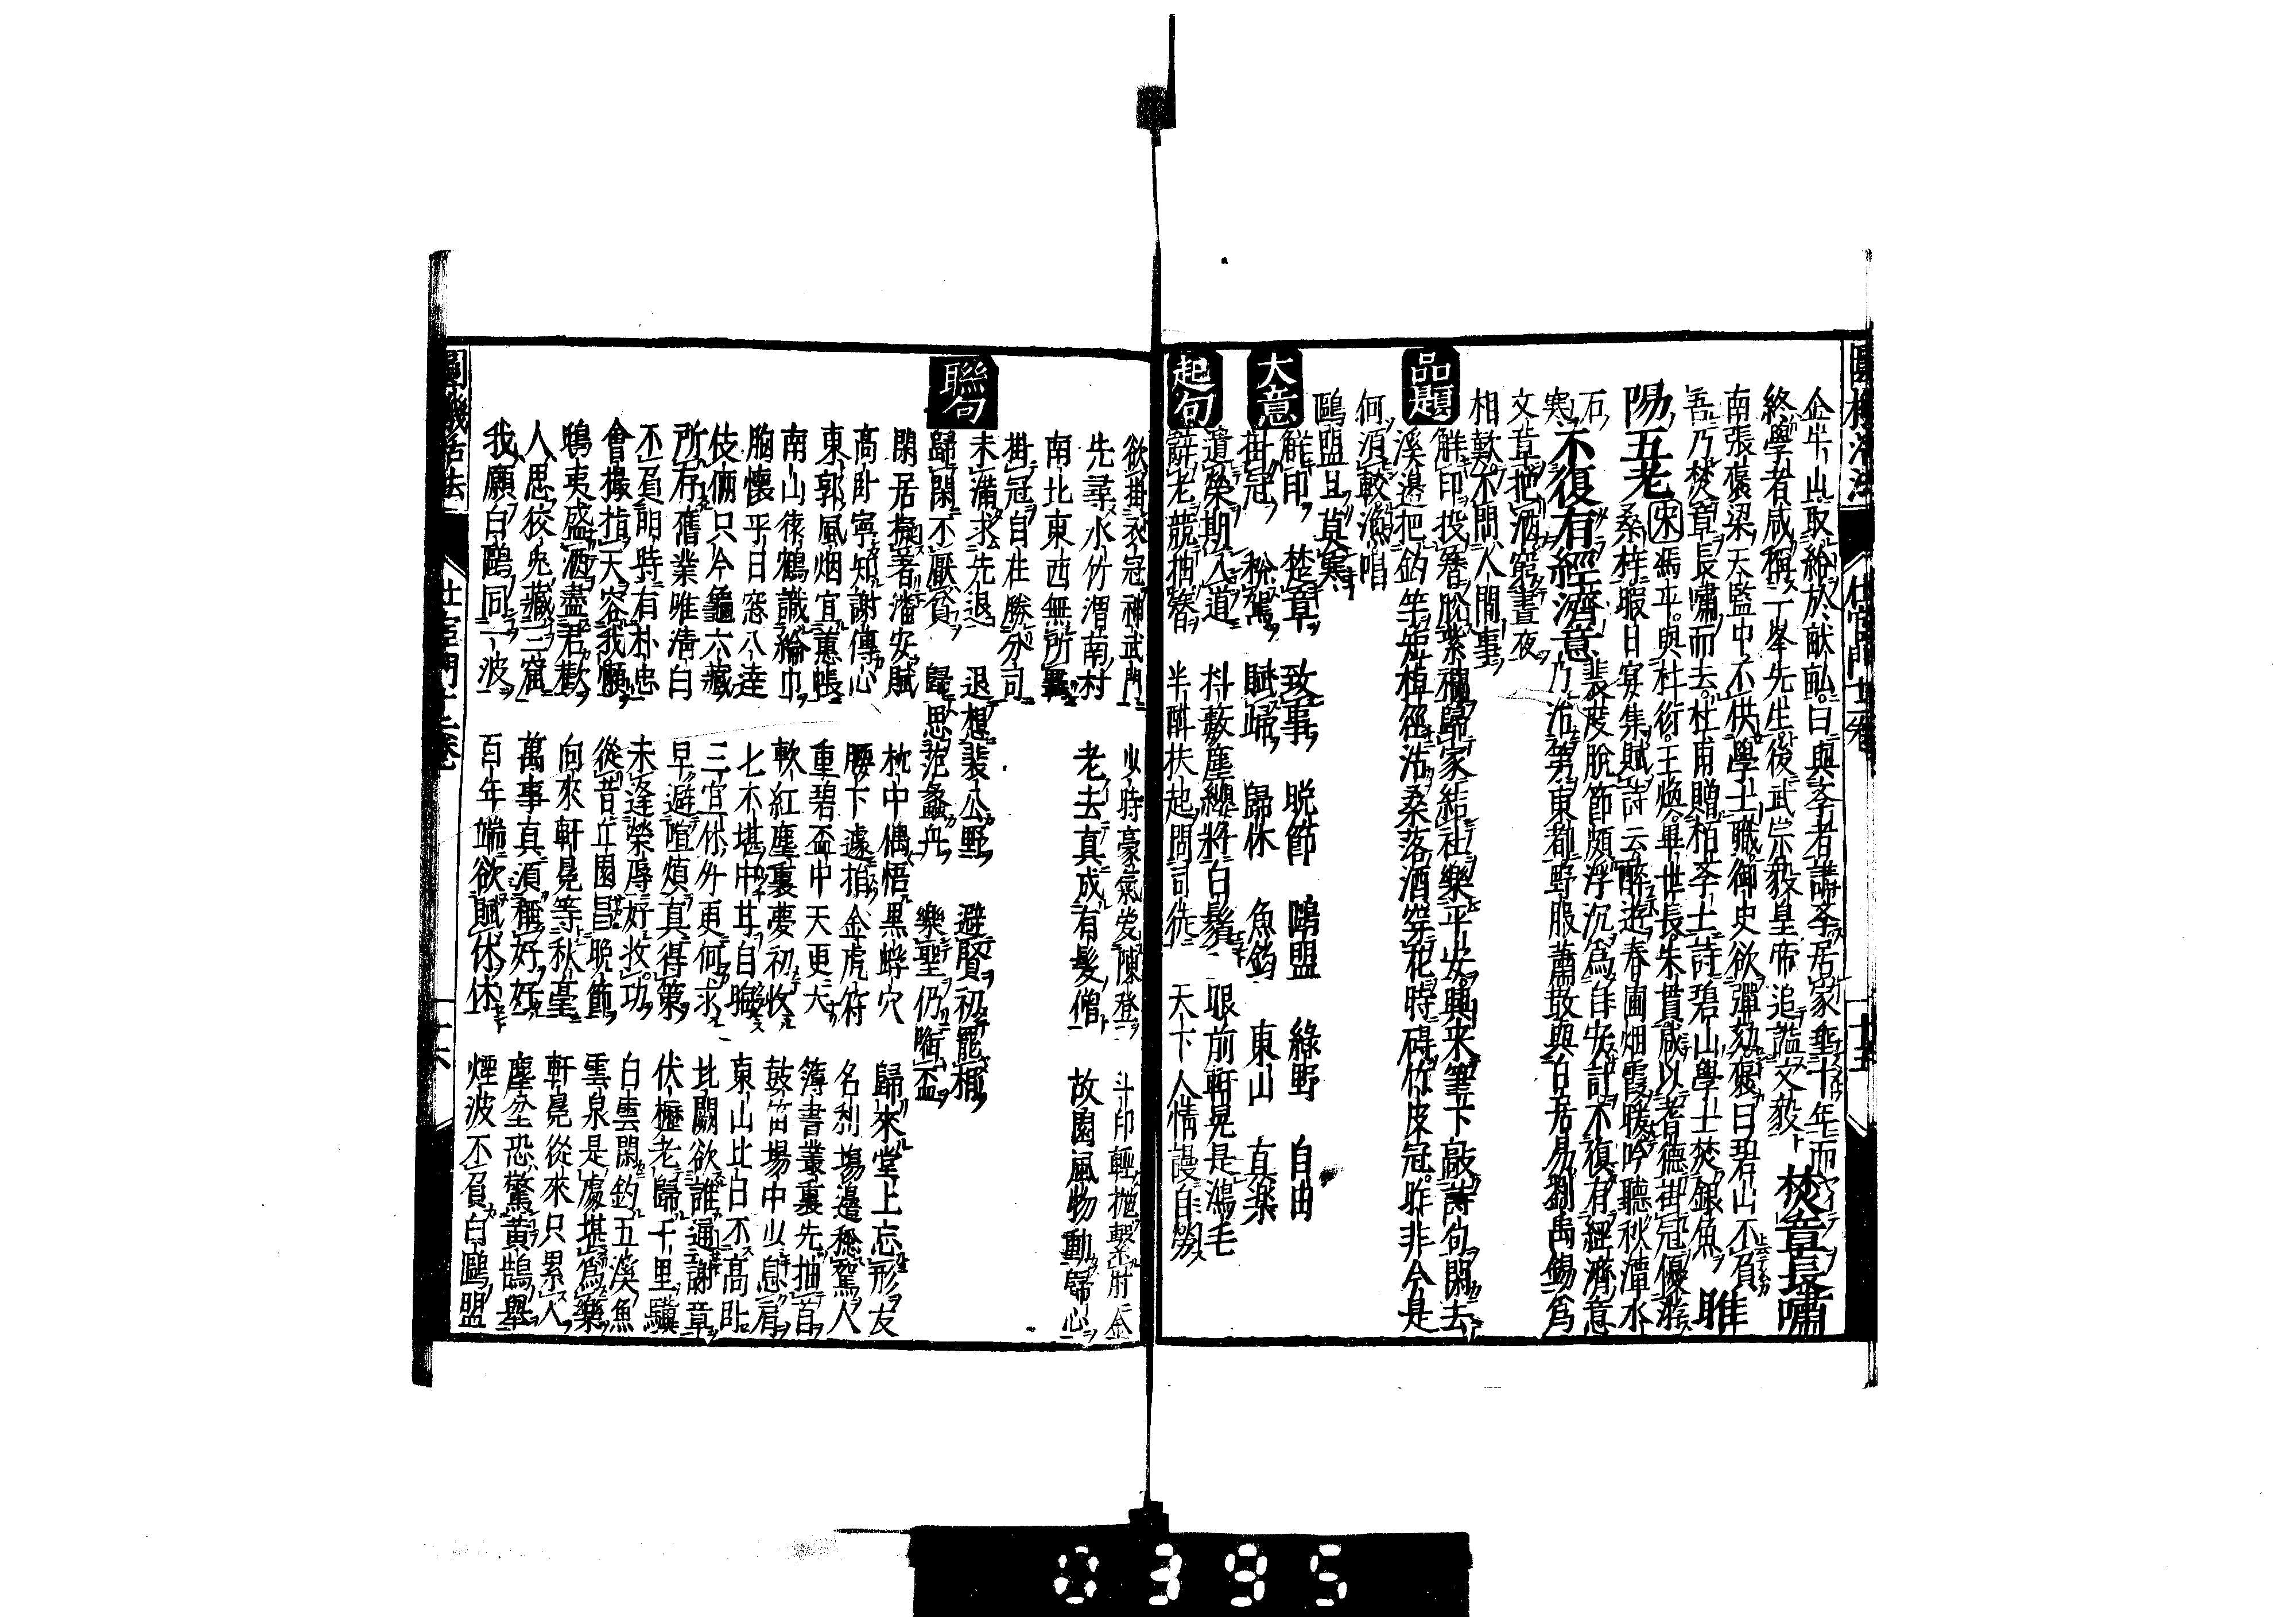 金牛山取給於献畝曰與爹者諸爹居家垂十年而
終學者咸稱一峯先生後武宗毅皇帝追謚文毅 焚章長嘯
南張褒梁天監中不供學士職御史欲彈劾褒曰碧山不負
吾乃焚章長嘯而去杜甫贈柏爹士詩碧山學士焚銀魚 睢
陽五老 宋馮平與杜衍王煥畢世長朱貫咸以耆德掛冠優游
桑梓暇日宴集賦詩云醉遊春圃烟霞暖吟聽秋潭水
石寒 不復有經濟意 裴度脫節頗浮沉為自安計不復有經濟意
乃治第東都野服蕭散與白居易劉禹錫為
文章把酒窮晝夜
相歡不問人間事
品題
解印投簪脫紫襴歸家結社樂平安興來筆下敲詩句閑去
溪邊把釣竿短棹徑沽桑落酒穿花時碍竹皮冠昨非今是
何須較漁唱
鷗盟且莫寒
大意
解印 焚章 致事 晚節 鷗盟 綠野 自由
掛冠 稅駕 賦歸 歸休 魚釣 東山 真樂
起句
遺榮期入道 抖擻塵纓將白鬚 眼前軒冕是鴻毛
辭老競抽簪 半酣扶起問司徒 天下人情謾自勞
欲掛衣冠神武門 少時豪氣發陳登 斗印輕拋繫肘金
先尋水竹渭南村 老去真成有髮僧 故園風物動歸心
南北東西無所羈
掛冠自在勝分司
聯句
未滿求先退 退想裴公野 避賢初罷相
歸閑不厭貧 歸思范蠡舟 樂聖仍啣盃
閑居擬著潘安賦 枕中偶悟黑蜉穴 歸來堂上忘形友
高臥寧知謝傅心 腰下遽捐金虎符 名利場邊稅駕人
東郭風烟宜蕙帳 重碧盃中天更大 簿書叢裏先抽首
南山猿鶴識綸巾 軟紅塵裏夢初收 鼓笛場中少息肩
胸懷平日窓八達 七不堪中甘自晦 東山此日不高臥
伎倆只今龜六藏 三宜休外更何求 北闕欲誰通謝章
所存舊業唯清白 早避喧煩真得策 伏櫪老歸千里驥
不負明時有朴忠 未逢榮辱好收功 白雲閑釣五溪魚
會攘揹天容我懶 從昔丘園昌晚節 雲泉是處堪為樂
鴟夷盛酒盡君歡 向來軒冕等秋毫 軒冕從來只累人
人思狡兔藏三窟 萬事真須稱好好 塵坌恐驚黃鵠舉
我願白鷗同一波 百年端欲賦休休 煙波不負白鷗盟
0395